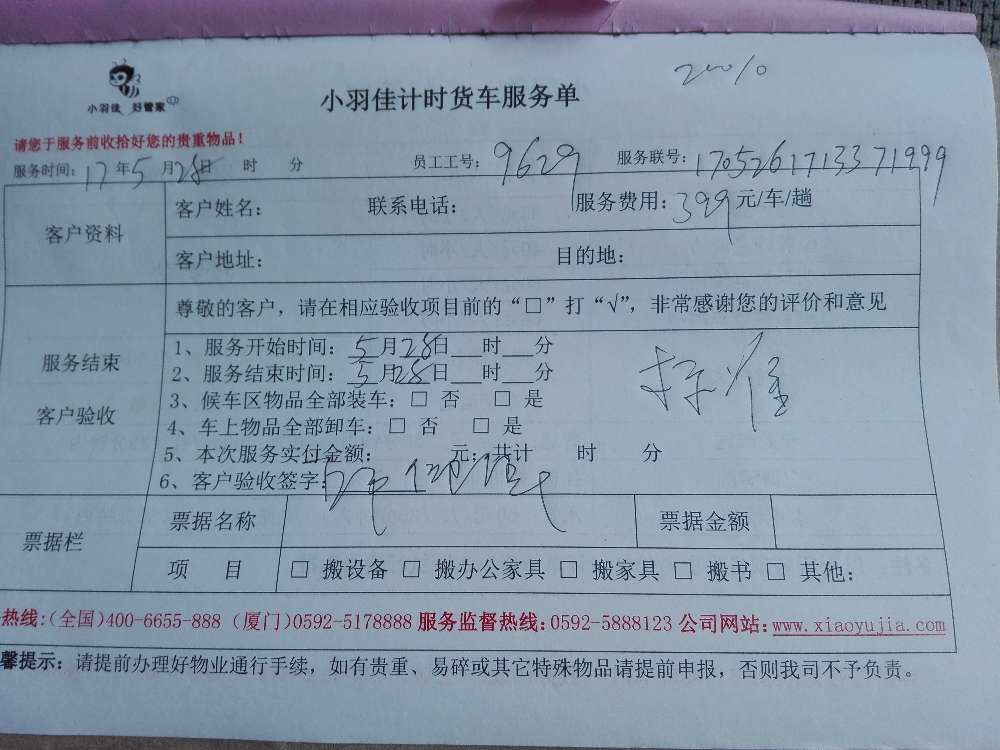 20010
小羽佳 好管家
小羽佳计时货车服务单
请您于服务前收拾好您的贵重物品！
服务时间：17年5月28日 时 分 员工工号：9629 服务联号：1705261713371999
客户资料
客户姓名： 联系电话： 服务费用：399元/车/趟
客户地址： 目的地：
服务结束
客户验收
尊敬的客户，请在相应验收项目前的“□”打“√”，非常感谢您的评价和意见
1、服务开始时间：5月28日___时___分
2、服务结束时间：5月28日___时___分
3、候车区物品全部装车：□ 否 □ 是
4、车上物品全部卸车：□ 否 □ 是
5、本次服务实付金额： 元；共计 时 分
6、客户验收签字：
票据栏
票据名称 票据金额
项 目 □ 搬设备 □ 搬办公家具 □ 搬家具 □ 搬书 □ 其他：
热线：(全国)400-6655-888 (厦门)0592-5178888 服务监督热线：0592-5888123 公司网站：www.xiaoyujia.com
馨提示：请提前办理好物业通行手续，如有贵重、易碎或其它特殊物品请提前申报，否则我司不予负责。